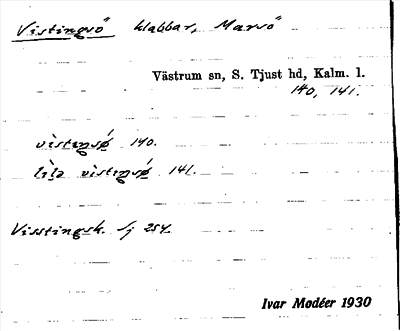 Vistingsö klabbar, Marsö
Västrum sn, S. Tjust hd, Kalm. l.
140, 141.
vistıŋsǿ 140.
lila vistıŋsǿ 141.
Visstingsk. Sj 254.
Ivar Modéer 1930